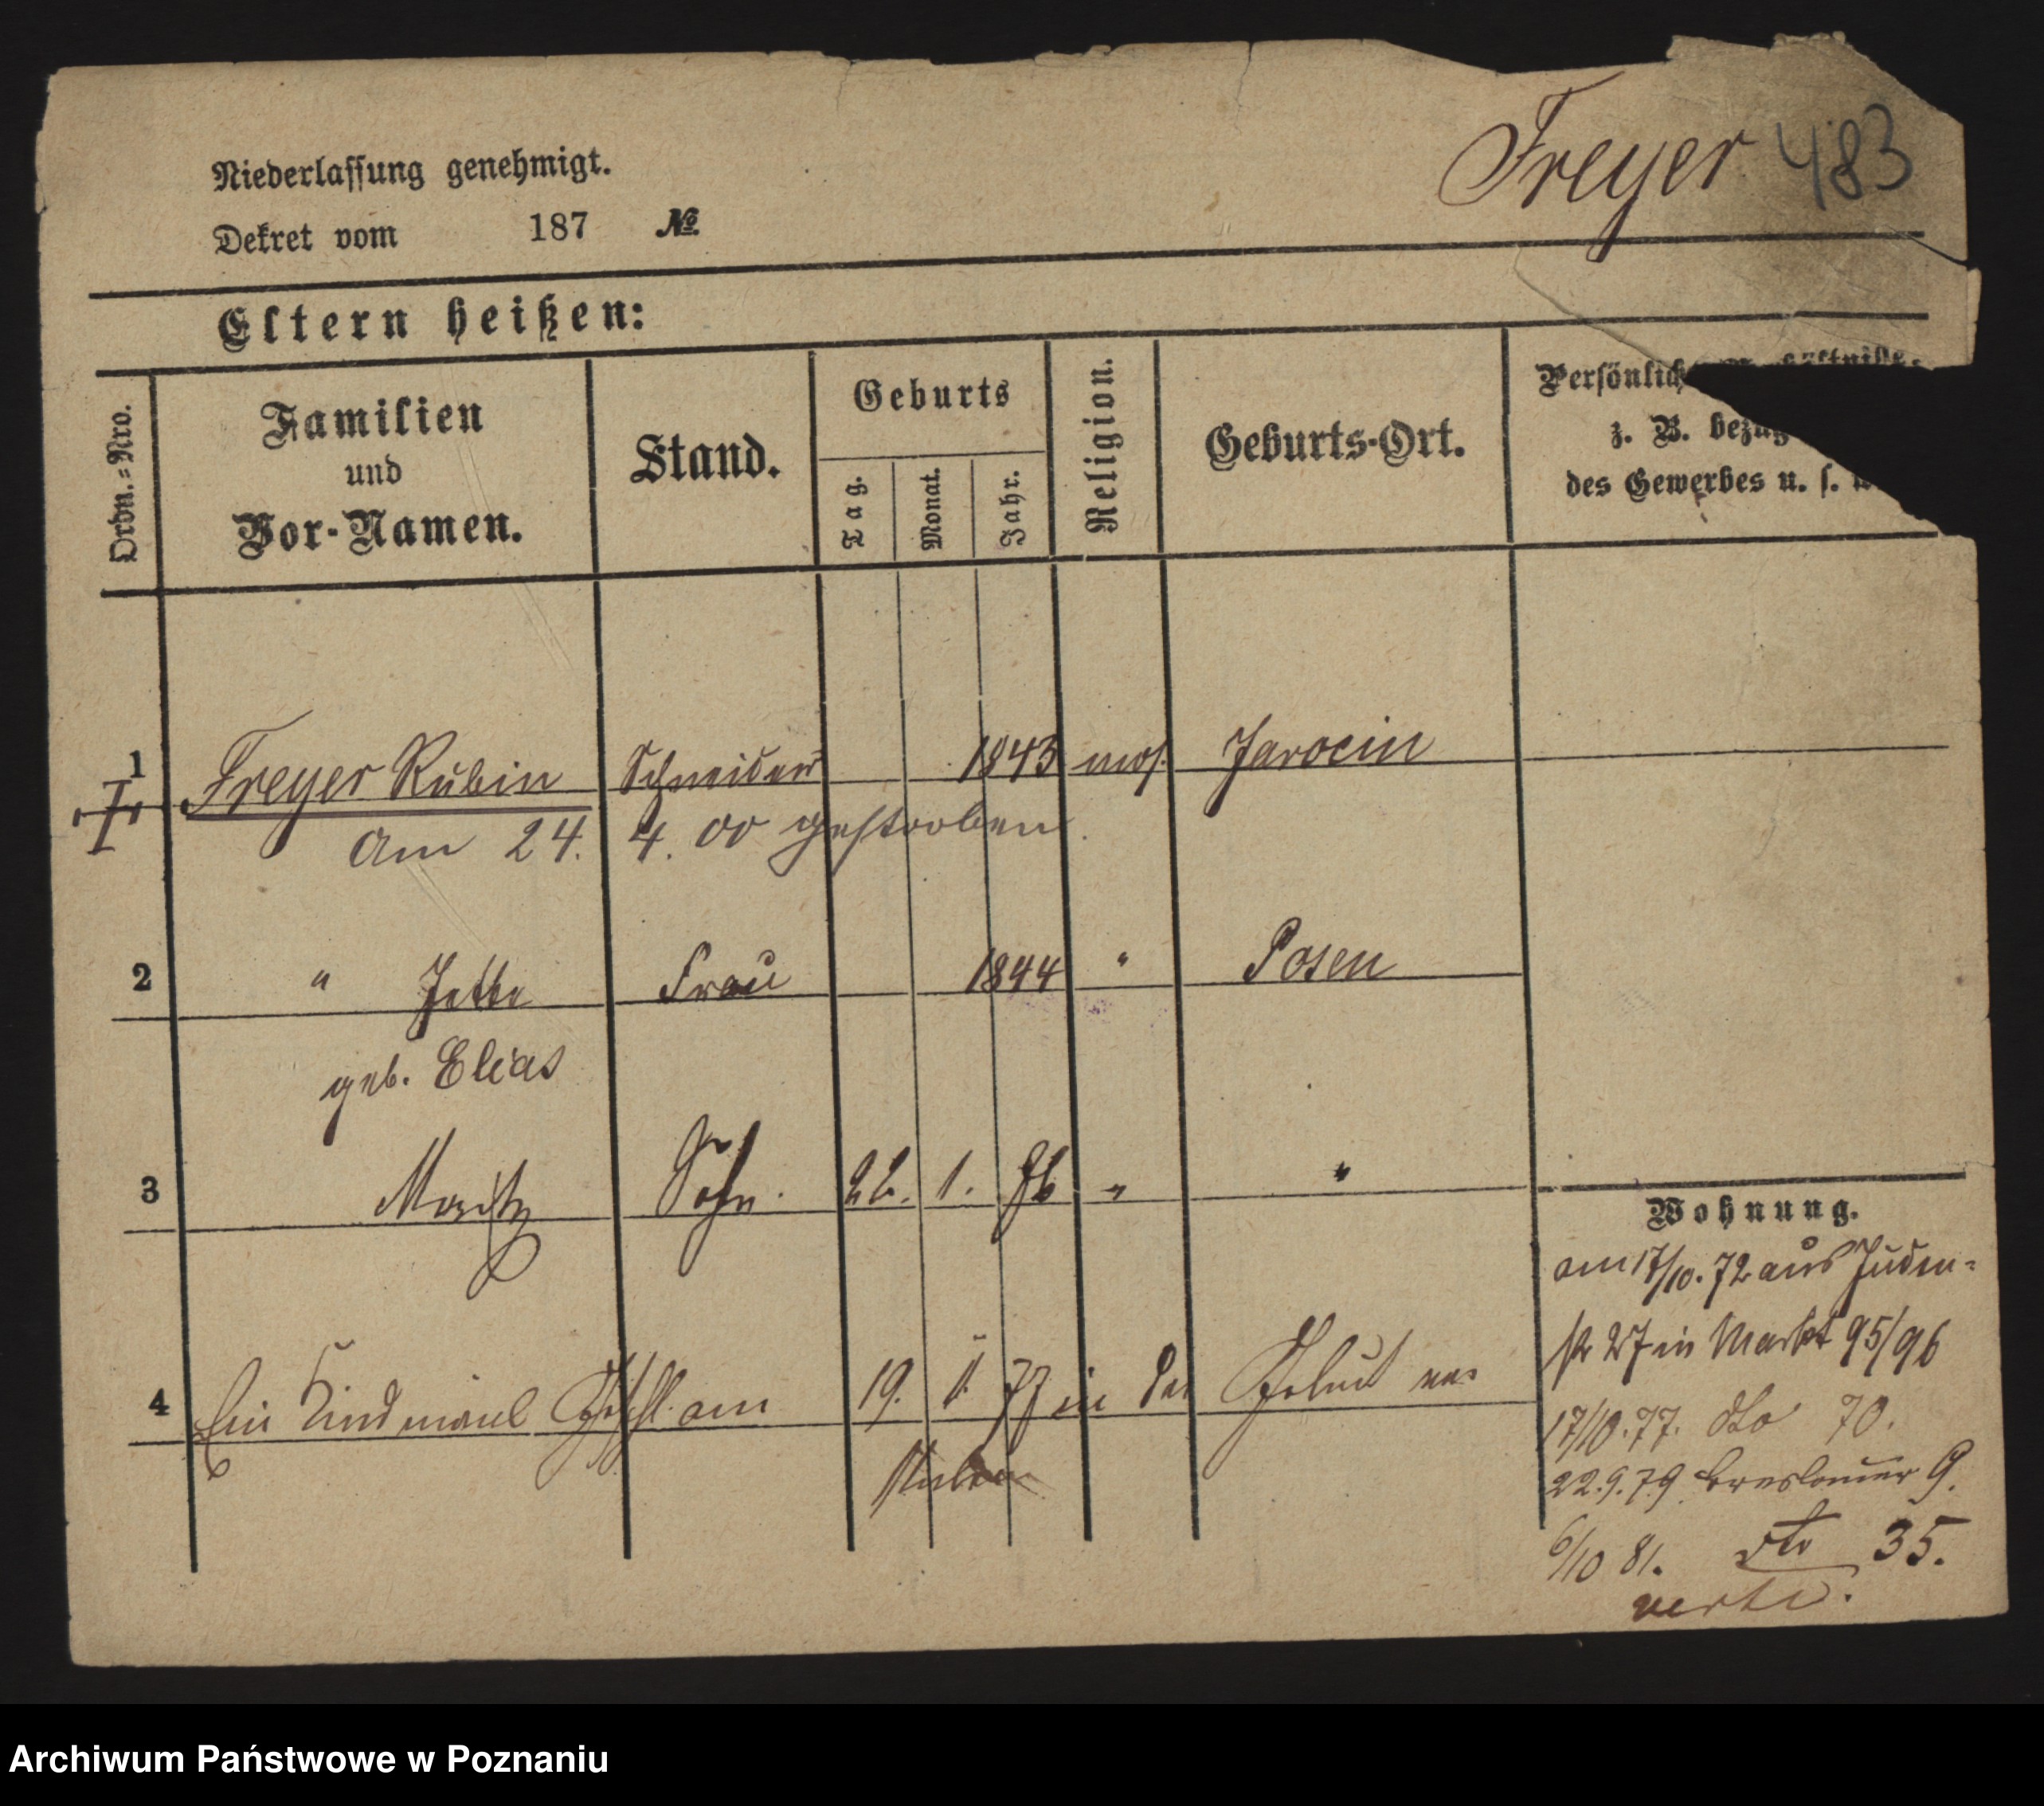 Freyer 483
Niederlassung genehmigt.
Dekret vom 187 №
Eltern heißen:
Ordn.-Nro.
Familien
und
Vor-Namen.
Stand.
Geburts
Tag.
Monat.
Jahr.
Religion.
Geburts-Ort.
Persönliche
z. B.
des Gewerbes u. s.
1 Freyer Rubin Schneider 1843 mos. Jarocin
am 24. 4. 00 gestorben.
2 " Jette Frau 1844 " Posen
geb. Elias
3 Moritz Sohn. 1. " "
4 Ein Kind männl. Geschl. am 19. 77 in der Geburt
Wohnung.
am 17/10. 72 aus Juden-
str 27 in Markt 95/96
17/10. 77. dto 70.
22.9.79 Breslauer 9.
6/10 81. dto 35.
verte.
Archiwum Państwowe w Poznaniu